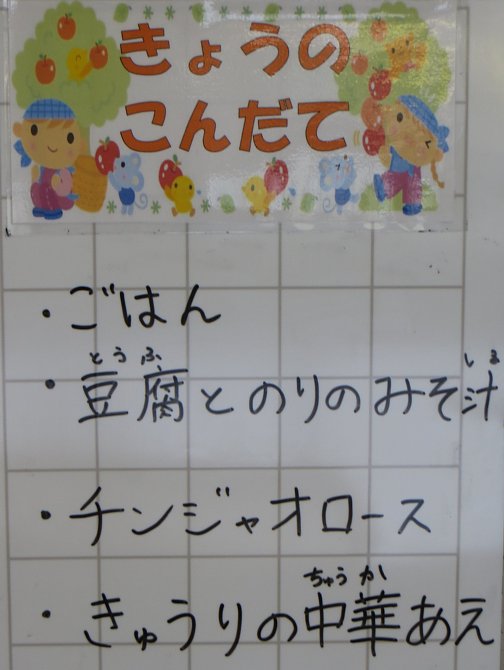 きょうの
こんだて
・ごはん
とうふ しる
・豆腐とのりのみそ汁
・チンジャオロース
ちゅうか
・きゅうりの中華あえ